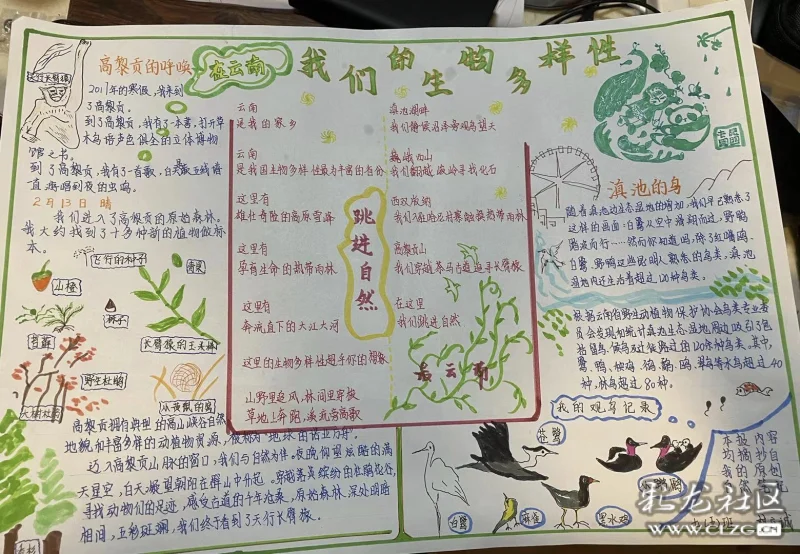 我们的生物多样性
在云南
高黎贡的呼唤
天行长臂猿
2017年的寒假，我来到
了高黎贡。
到了高黎贡，我有了一本书，打开草
木鸟语声色俱全的立体博物
馆之书。
到了高黎贡，我有了一首歌，白
直游唱到夜的虫鸣。
2月13日 晴
我们进入了高黎贡的原始森林。
我大约找到了十多种新的植物做标
本。
飞行的种子
山橙
种子
苔藓
长臂猿的王美味
野生杜鹃
大树杜鹃
高黎贡拥有典型的高山峡谷自然
地貌和丰富多样的动植物资源，被称为
迈入高黎贡山脉的窗口，我们与自然为伴。夜晚仰望炫酷的满
天星空，白天凝望朝阳在群山中升起。穿越落英缤纷的杜鹃花谷，
寻找动物们的足迹，感受古道的千年沧桑，原始森林深处明暗
相间，五彩斑斓，我们终于看到了天行长臂猿。
云南
是我的家乡
云南
是我国生物多样性最为丰富的省份
这里有
雄壮奇险的高原雪峰
这里有
孕育生命的热带雨林
这里有
奔流直下的大江大河
这里的生物多样性超乎你的想象
山野里追风，林间里穿梭
草地上奔跑，溪流旁高歌
跳进自然
滇池湖畔
我们静候沼泽旁观鸟望天
巍峨帽天山
寻找化石
西双版纳
热带雨林
高黎贡山
我们穿越茶马古道追寻长臂猿
在这里
我们跳进自然
最云南
昆明
滇池的鸟
随着滇池边生态湿地的增加，我们早已熟悉了
这样的画面：白鹭从空中滑翔而过，野鸭
踏波而行……然而你知道吗，除了红嘴鸥、
白鹭、野鸭这些昆明人熟悉的鸟类，滇池
湿地内还生活着超过120种鸟类。
根据云南省野生动植物保护协会鸟类专业委
员会发现和统计滇池生态湿地周边收录了包
括留鸟、候鸟及迁徙路过的120余种鸟类。其中，
鹭、鸭、秧鸡、鸻、鹬、鸥、䴘等水鸟超过40
种，林鸟超过80种。
我的观鸟记录
苍鹭
白鹭
麻雀
黑水鸡
本报内容
均摘抄自
我的原创
彩龙社区
www.clzg.cn